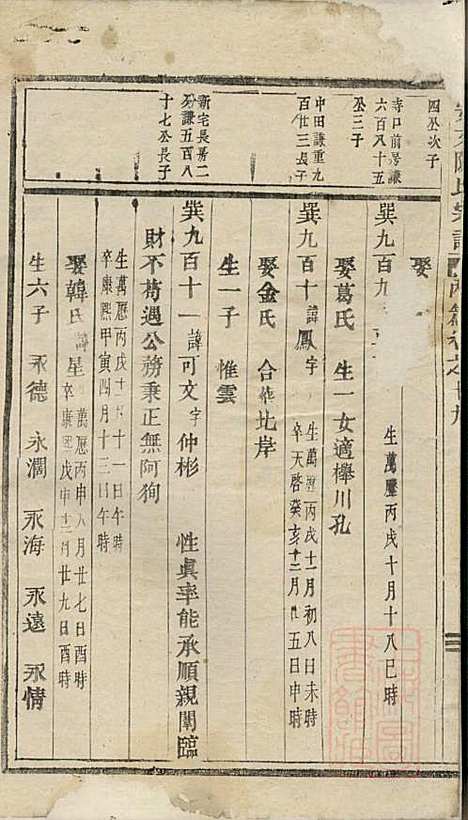 陳氏宗譜
四公次子
娶
寺口前房謙
六百八十五
公三子
巽九百九
生萬曆丙戌十月十八巳時
娶葛氏 生一女適櫸川孔
中田謙重九
百廿三長子
巽九百十 諱鳳字
生萬曆丙戌十一月初八日未時
卒天啓癸亥十二月 五日申時
娶金氏 合葬北岸
生一子 惟雲
新宅長房二
分謙五百八
十七公長子
巽九百十一 諱可文字仲彬 性真率能承順親闈臨
財不茍遇公務秉正無阿狥
生萬曆丙戌十二月十一日午時
卒康熙甲寅四月十三日午時
娶韓氏 諱星
萬曆丙申八月廿七日酉時
卒康熙戊申十二月廿九日酉時
生六子 永德 永瀾 永海 永遠 永情